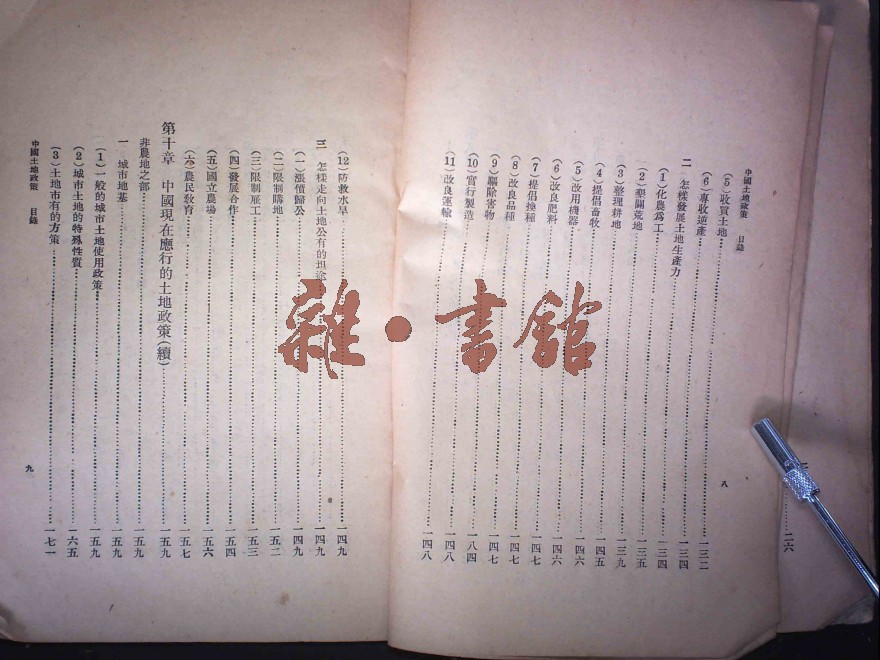 中國土地政策　目錄
(5)收買土地……一三二
(6)專收逆產……一三四
二　怎樣發展土地生產力……一三四
(1)化農爲工……一三五
(2)墾闢荒地……一三九
(3)整理耕地……一四五
(4)提倡畜牧……一四六
(5)改用機器……一四六
(6)改良肥料……一四七
(7)提倡換種……一四七
(8)改良品種……一四七
(9)驅除害物……一八四
(10)實行製造……一四八
(11)改良運輸……一四八
八
(12)防救水旱……一四九
三　怎樣走向土地公有的坦途……一四九
(一)漲價歸公……一四九
(二)限制購地……一五二
(三)限制雇工……一五三
(四)發展合作……一五四
(五)國立農場……一五六
(六)農民教育……一五七
第十章　中國現在應行的土地政策(續)……一五九
非農地之部……一五九
一　城市地基……一五九
(1)一般的城市土地使用政策……一五九
(2)城市土地的特殊性質……一六五
(3)土地市有的方策……一七一
中國土地政策　目錄
九
雜·書館